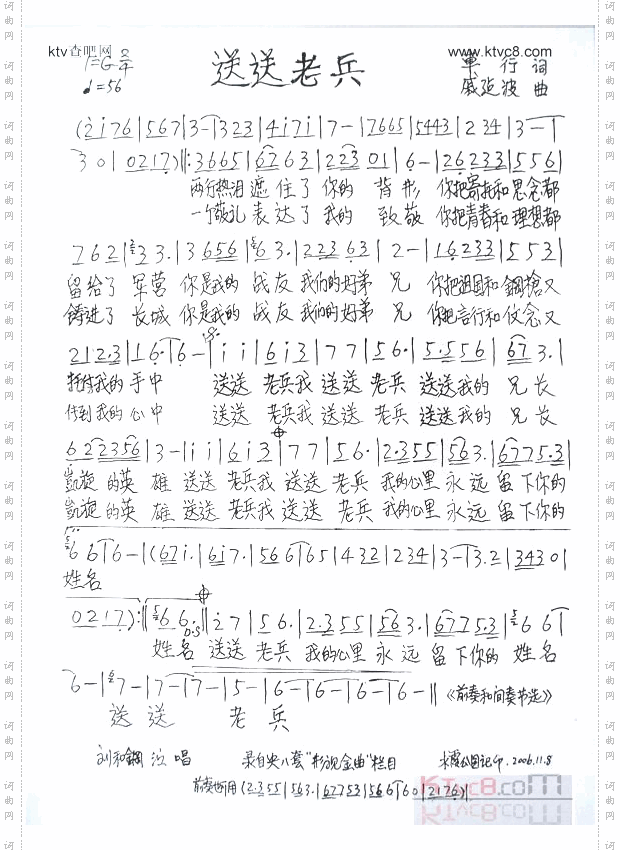 ktv查吧网
www.ktvc8.com
1=G 2/4
♩=56
送送老兵
单行 词
戚延波 曲
(2̇ i 7 6 | 5 6 7 | 3 - | 3 3 2 3 | 4 i 7 i | 7 - | 7 6 6 5 | 5 4 4 3 | 2 3 4 | 3 - |
3 0 | 0 2 1 7 ) ‖: 3 6 6 5 | 6 7 6 3 | 2 2 3 0 1 | 6 - | 2 6 2 3 3 | 5 5 6 |
两行热泪 遮住了 你的 背影 你把寄托和思念都
一个敬礼 表达了 我的 致敬 你把青春和理想都
7 6 2 | 3 3. | 3 6 5 6 | 6 3. | 2 2 3 6 3 | 2 - | 1 6 2 3 3 | 5 5 3 |
留给了 军营 你是我的 战友 我们的好弟 兄 你把祖国和钢枪又
铸进了 长城 你是我的 战友 我们的好弟 兄 你把言行和仪念又
2 1 2. 3 | 1 6. | 6 - | i i | 6 i 3 | 7 7 | 5 6. | 5. 5 5 6 | 6 7 3. |
托付我的 手中 送送 老兵我 送送 老兵 送送我的 兄长
传到我的 心中 送送 老兵我 送送 老兵 送送我的 兄长
6 2 2 3 5 6 | 3 - | i i | 6 i 3 | 7 7 | 5 6. | 2. 3 5 5 | 5 6 3. | 6 7 7 5. 3 |
凯旋 的英 雄 送送 老兵我 送送 老兵 我的心里 永远 留下你的
凯旋 的英 雄 送送 老兵我 送送 老兵 我的心里 永远 留下你的
6 6 | 6 - | (6 7 i. | 6 i 7. | 5 6 6 | 6 5 | 4 3 2 | 2 3 4 | 3 - | 3 3. 2 | 3 4 3 0 |
姓名
0 2 1 7 ) :‖ 6 6. D.S ‖ 2̇ 7 | 5 6. | 2. 3 5 5 | 5 6 3. | 6 7 7 5. 3 | 6 6 |
姓名 送送 老兵 我的心里 永远 留下你的 姓名
6 - | 7 - | 7 - | 7 - | 5 - | 6 - | 6 - | 6 - | 6 - ‖ 《前奏和间奏节选》
送 送 老 兵
刘和钢 演唱 录自央八套"影视金曲"栏目 2006.11.8
前奏也可用 (2. 3 5 5 | 5 6 3. | 6 7 7 5 3 | 5 6 6 | 6 0 | 2 1 7 6 )|
KTVC8.com
词曲网